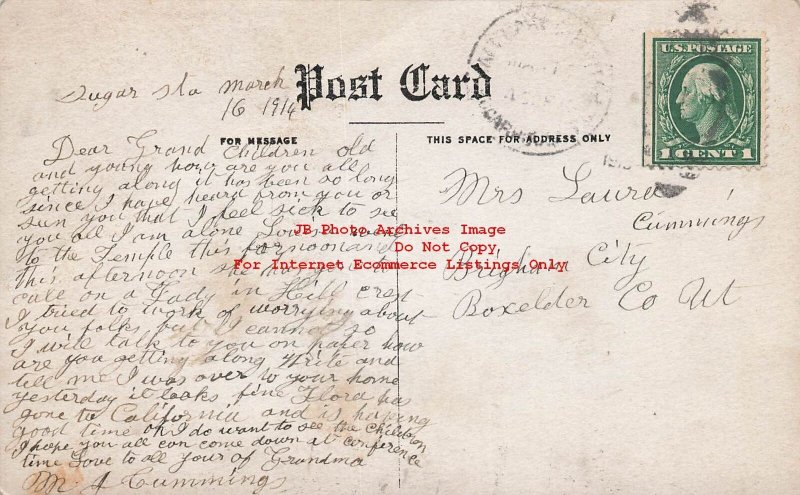 Sugar Sta March
16 1914
Post Card
FOR MESSAGE
THIS SPACE FOR ADDRESS ONLY
U.S. POSTAGE
1 CENT 1
Dear Grand Children old
and young how are you all
getting along it has been so long
since I have heard from you or
seen you that I feel sick to see
you all I am alone
to the Temple this fornoon and
this afternoon she has
call on a Lady in Hill crest
I tried to work of worrying about
you folks but I cannot so
I will talk to you on paper how
are you getting along write and
tell me I was over to your home
yesterday it looks fine Flora has
gone to California and is having
good time oh I do want to see the children
I hope you all can come down at conference
time Love to all yours of Grandma
M J Cummings
Mrs Laura
Cummings
Brigham City
Boxelder Co Ut
JB Photo Archives Image
Do Not Copy
For Internet Ecommerce Listings Only